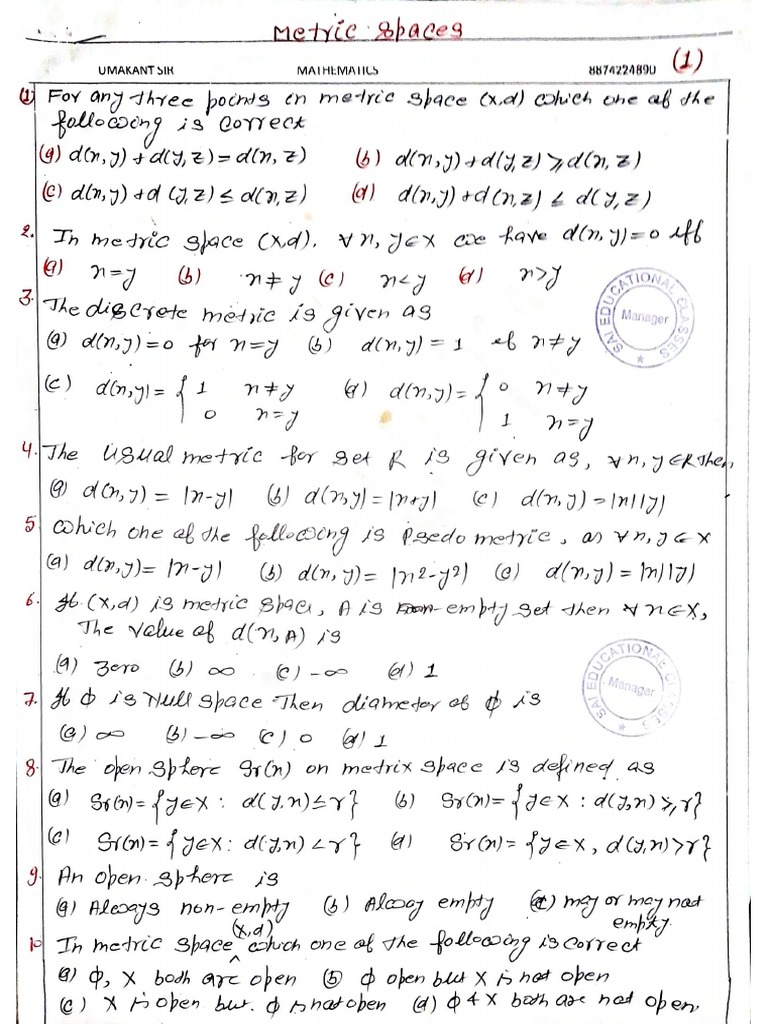 Metric Spaces
UMAKANT SIR MATHEMATICS 8874224890 (1)
(1) For any three points in metric space (x,d) which one of the
following is correct
(a) d(x,y) + d(y,z) = d(x,z) (b) d(x,y) + d(y,z) ≥ d(x,z)
(c) d(x,y) + d(y,z) ≤ d(x,z) (d) d(x,y) + d(x,z) ≤ d(y,z)
2. In metric space (x,d). ∀ x, y ∈ X we have d(x,y) = 0 iff
(a) x = y (b) x ≠ y (c) x < y (d) x > y
3. The discrete metric is given as
(a) d(x,y) = 0 for x = y (b) d(x,y) = 1 if x ≠ y
(c) d(x,y) = { 1 x ≠ y (d) d(x,y) = { 0 x ≠ y
0 x = y 1 x = y
4. The usual metric for set R is given as, ∀ x, y ∈ R then,
(a) d(x,y) = |x-y| (b) d(x,y) = |x+y| (c) d(x,y) = |x||y|
5. which one of the following is Psedo metric, as ∀ x, y ∈ X
(a) d(x,y) = |x-y| (b) d(x,y) = |x²-y²| (c) d(x,y) = |x||y|
6. If (x,d) is metric space, A is non-empty set then ∀ x ∈ X,
The value of d(x,A) is
(a) zero (b) ∞ (c) -∞ (d) 1
7. If ϕ is Null space Then diameter of ϕ is
(a) ∞ (b) -∞ (c) 0 (d) 1
8. The open sphere Sr(x) on metrix space is defined as
(a) Sr(x) = {y∈X : d(y,x) ≤ r} (b) Sr(x) = {y∈X : d(y,x) ≥ r}
(c) Sr(x) = {y∈X : d(y,x) < r} (d) Sr(x) = {y∈X, d(y,x) > r}
9. An open sphere is
(a) Always non-empty (b) Alway empty (c) may or may not
empty.
10 In metric space (x,d) which one of the following is correct
(a) ϕ, X both are open (b) ϕ open but X is not open
(c) X is open but ϕ is not open (d) ϕ & X both are not open.
SAI EDUCATIONAL CLASSES
Manager
SAI EDUCATIONAL CLASSES
Manager